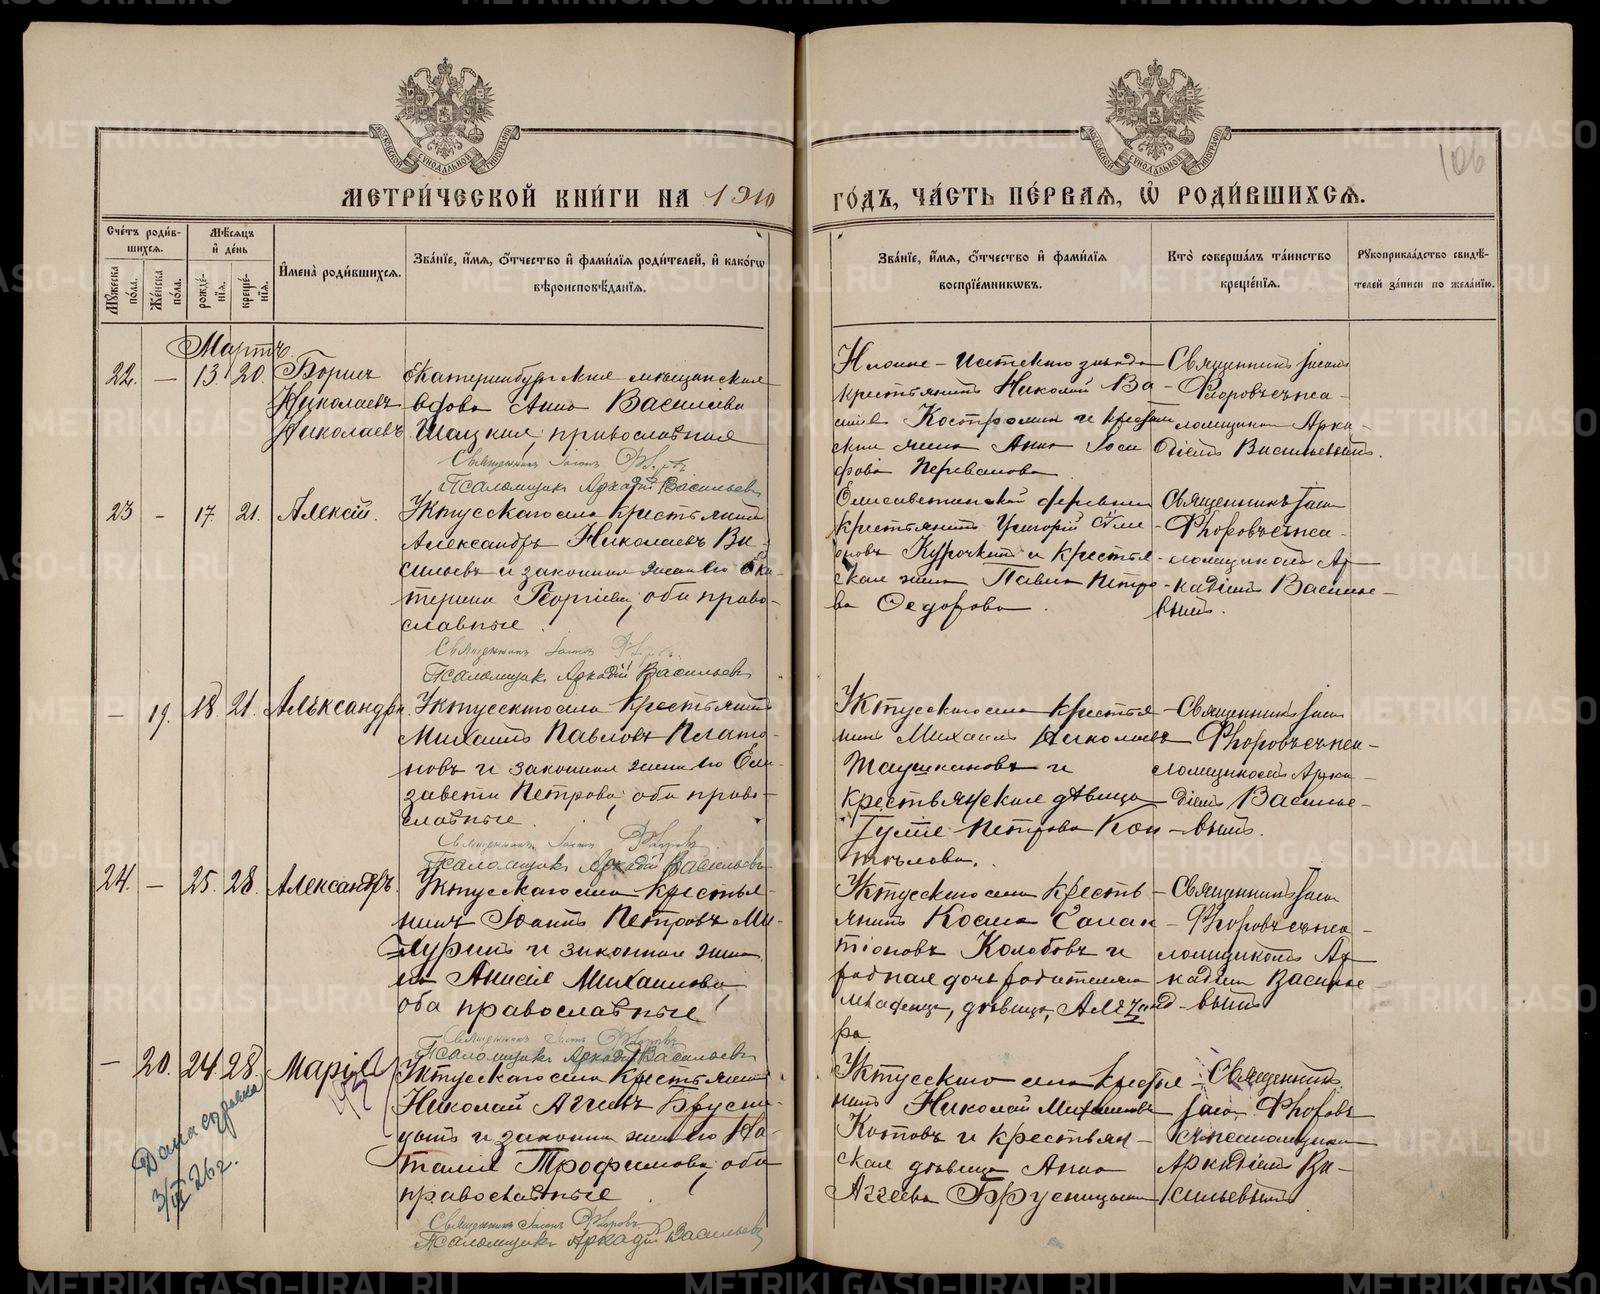 МЕТРИ́ЧЕСКОЙ КНИ́ГИ НА 1910 ГО́ДЪ, ЧА́СТЬ ПЕ́РВАЯ, Ѡ҆ РОДИ́ВШИХСѦ.
106
Сче́тъ роди́в-
шихсѧ.
Мꙋ́жеска по́ла.
Же́нска по́ла.
Мѣ́сѧцъ
и҆ де́нь
рожде́-
нїѧ.
креще́-
нїѧ.
И҆мена̀ роди́вшихсѧ.
Зва́нїе, и҆́мѧ, ѻ҆́тчество и҆ фами́лїѧ роди́телей, и҆ како́гѡ
вѣроисповѣ́данїѧ.
Зва́нїе, и҆́мѧ, ѻ҆́тчество и҆ фами́лїѧ
воспрїе́мникѡвъ.
Кто̀ соверша́лъ та́инство
креще́нїѧ.
Рꙋкоприкла́дство свидѣ́-
телей за́писи по жела́нїю.
Мартъ
22. — 13 20.
Борисъ
Николаевъ
Николаевъ
Екатеринбургская мѣщанская
вдова Анна Васильева
Шацкая, православная
Священникъ Іоаннъ Флоровъ
Псаломщикъ Аркадій Васильевъ
Нижне-Исетскаго завода
крестьянинъ Николай Ва-
Костроминъ и крестьян
ская жена Анна Іоси
фова
Священникъ Іоаннъ
Флоровъ съ пса-
ломщикомъ Арка-
діемъ Васильевымъ.
23 — 17. 21. Алексій.
Уктусскаго села крестьянинъ
Александръ Николаевъ Ва-
сильевъ и законная жена его Ека-
терина Георгіева, оба право-
славные.
Священникъ Іоаннъ Флоровъ
Псаломщикъ Аркадій Васильевъ
Елисаветинской деревни
крестьянинъ Григорій
Курочкинъ и крестья-
ская жена Павла Петро-
ва Федорова.
Священникъ Іоаннъ
Флоровъ съ пса-
ломщикомъ Ар-
кадіемъ Василье-
вымъ.
— 19. 18. 21. Александра
Уктусскаго села крестьянинъ
Михаилъ Павловъ Плато-
новъ и законная жена его Ели-
завета Петрова, оба право-
славные.
Священникъ Іоаннъ Флоровъ
Псаломщикъ Аркадій Васильевъ
Уктусскаго села крестья-
нинъ Михаилъ Николаевъ
и
крестьянская дѣвица
Петрова
Священникъ Іоаннъ
Флоровъ съ пса-
ломщикомъ Арка-
діемъ Василье-
вымъ.
24. — 25. 28. Александръ.
Уктусскаго села крестья-
нинъ Іоаннъ Петровъ Ми-
шуринъ и законная жена
его Анисія Михаилова,
оба православные
Священникъ Іоаннъ Флоровъ
Псаломщикъ Аркадій Васильевъ
Уктусскаго села кресть-
янинъ Косма Галак
тіоновъ Колобовъ и
родная дочь родителей
младенца, дѣвица, Александ-
ра
Священникъ Іоаннъ
Флоровъ съ пса-
ломщикомъ Ар-
кадіемъ Василье-
вымъ
— 20. 24 28. Марія
Дана справка
3/IX 26 г.
Уктусскаго села крестьянинъ
Николай Аггеевъ Брусни-
цынъ и законная жена его На-
талія Трофимова, оба
православные
Священникъ Іоаннъ Флоровъ
Псаломщикъ Аркадій Васильевъ
Уктусскаго села крестья-
нинъ Николай Михаиловъ
Котовъ и крестьян-
ская дѣвица Анна
Аггеева Брусницына
Священникъ
Іоаннъ Флоровъ
съ псаломщикомъ
Аркадіемъ Ва-
сильевымъ
METRIKI.GASO-URAL.RU